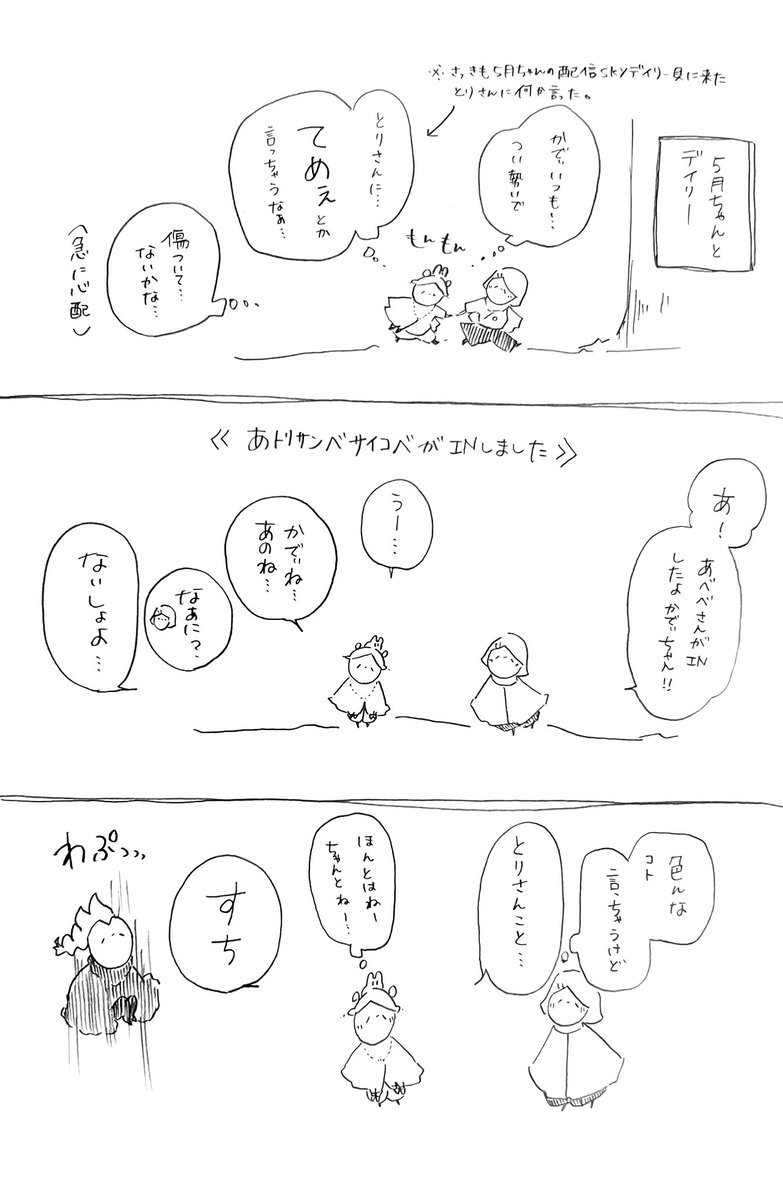 5月ちゃんと
デイリー
※さっきも5月ちゃんの配信SKYデイリー見に来た
とりさんに何か言った。
かでぃいつも…
つい勢いで
とりさんに…
てめぇとか
言っちゃうなぁ…
もんもん
傷ついて…
ないかな…
(急に心配)
≪あトリサンベサイコベがINしました≫
あ!
あべべさんがIN
したよかでぃちゃん!!
うー…
かでぃね…
あのね…
なぁに?
ないしょよ…
色んな
コト
言っちゃうけど
とりさんこと…
ほんとはねー
ちゃんとねー…
すち
わぷっっ